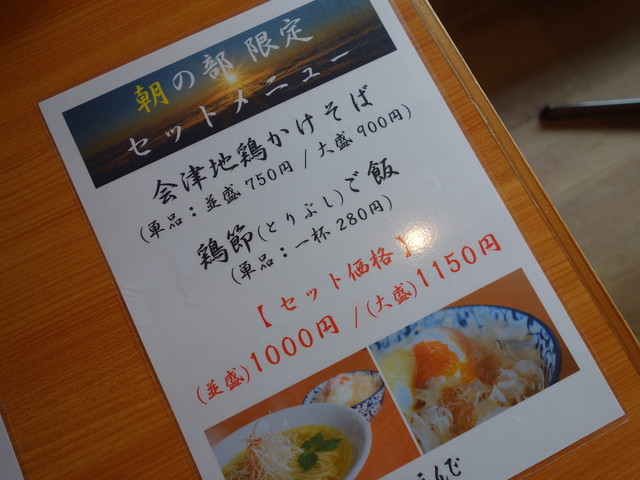 朝の部 限定
セットメニュー
会津地鶏かけそば
(単品：並盛 750円 / 大盛 900円)
鶏節(とりぶし)ご飯
(単品：一杯 280円)
【 セット価格 】
(並盛)1000円 / (大盛)1150円